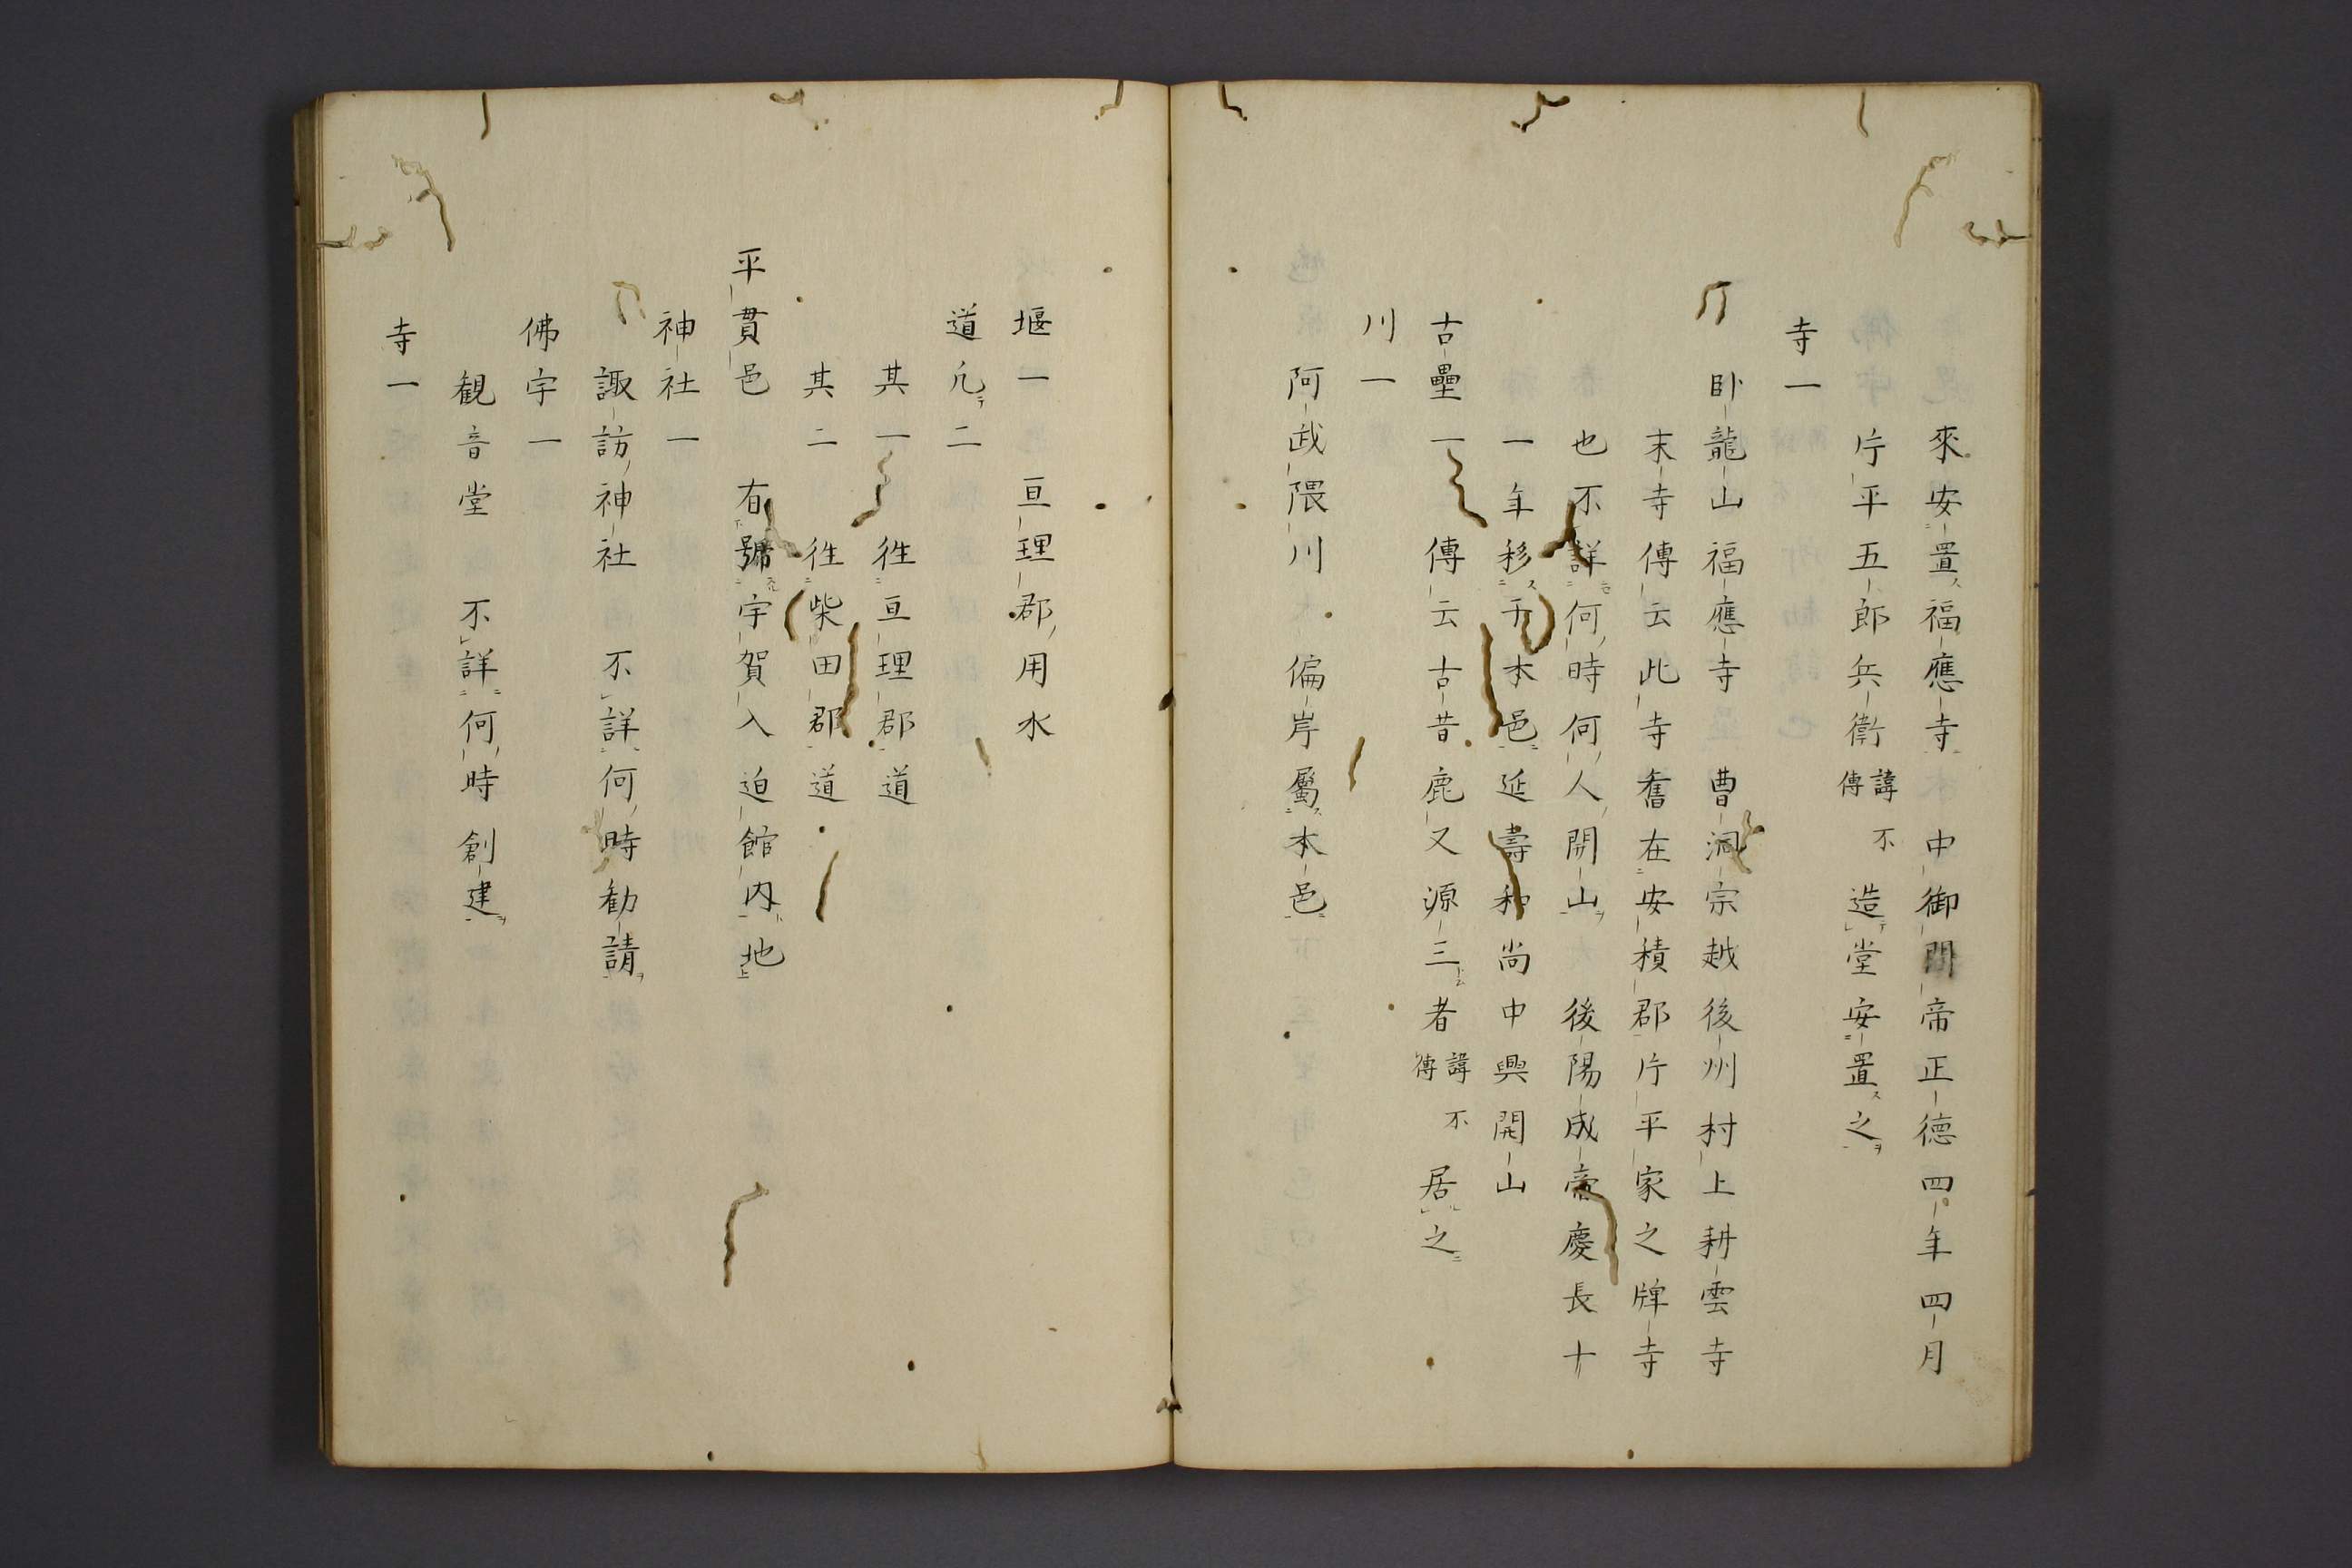 來安置福應寺　中御門帝正德四年四月
片平五郎兵衛諱不傳造堂安置之
寺一
卧龍山福應寺　曹洞宗越後州村上耕雲寺
末寺傳云此寺舊在安積郡片平家之牌寺
也不詳何時何人開山　後陽成帝慶長十
一年移于本邑延壽和尚中興開山
古壘一　傳云古昔鹿又源三者諱不傳居之
川一
阿武隈川　偏岸屬本邑
堰一　亘理郡用水
道凢二
其一　徃亘理郡道
其二　徃柴田郡道
平貫邑　有號宇賀入迫館内地
神社一
諏訪神社　不詳何時勸請
佛宇一
観音堂　不詳何時創建
寺一